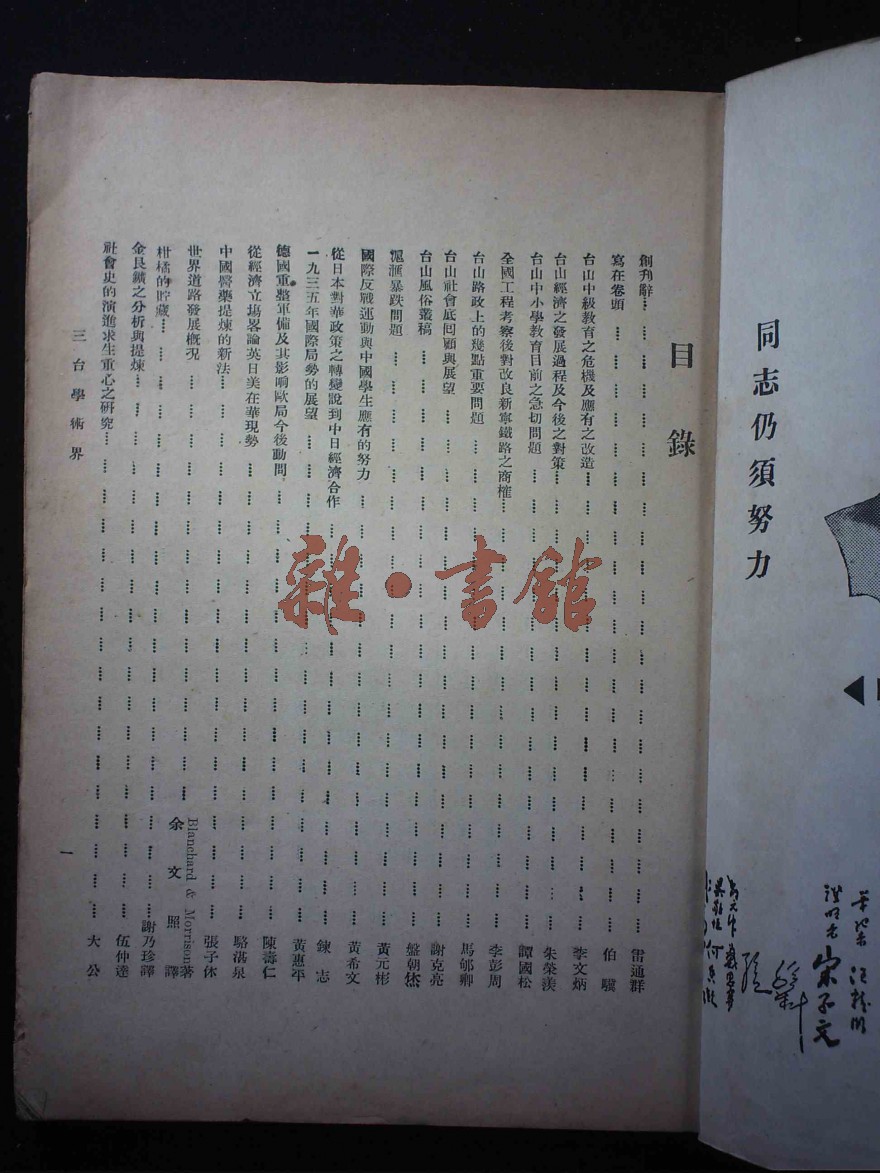 同志仍須努力
宋子文
目錄
創刊辭 雷通群
寫在卷頭 伯驥
台山中級教育之危機及應有之改造 李文炳
台山經濟之發展過程及今後之對策 朱榮渼
台山中小學教育目前之急切問題 譚國松
全國工程考察後對改良新寧鐵路之商榷 李彭周
台山路政上的幾點重要問題 馬郇卿
台山社會底回顧與展望 謝克亮
台山風俗叢稿 盤朝杰
滬滙暴跌問題 黃元彬
國際反戰運動與中國學生應有的努力 黃希文
從日本對華政策之轉變說到中日經濟合作 鍊志
一九三五年國際局勢的展望 黃惠平
德國重整軍備及其影响歐局今後動問 陳濤仁
從經濟立塲畧論英日美在華現勢 駱湛泉
中國醫藥提煉的新法 張子休
世界道路發展概況 Blanchard & Morrison著
余文照譯
柑橘的貯藏 謝乃珍譯
金艮鑛之分析與提煉 伍仲達
社會史的演進求生重心之研究 大公
三台學術界
一
雜·書館